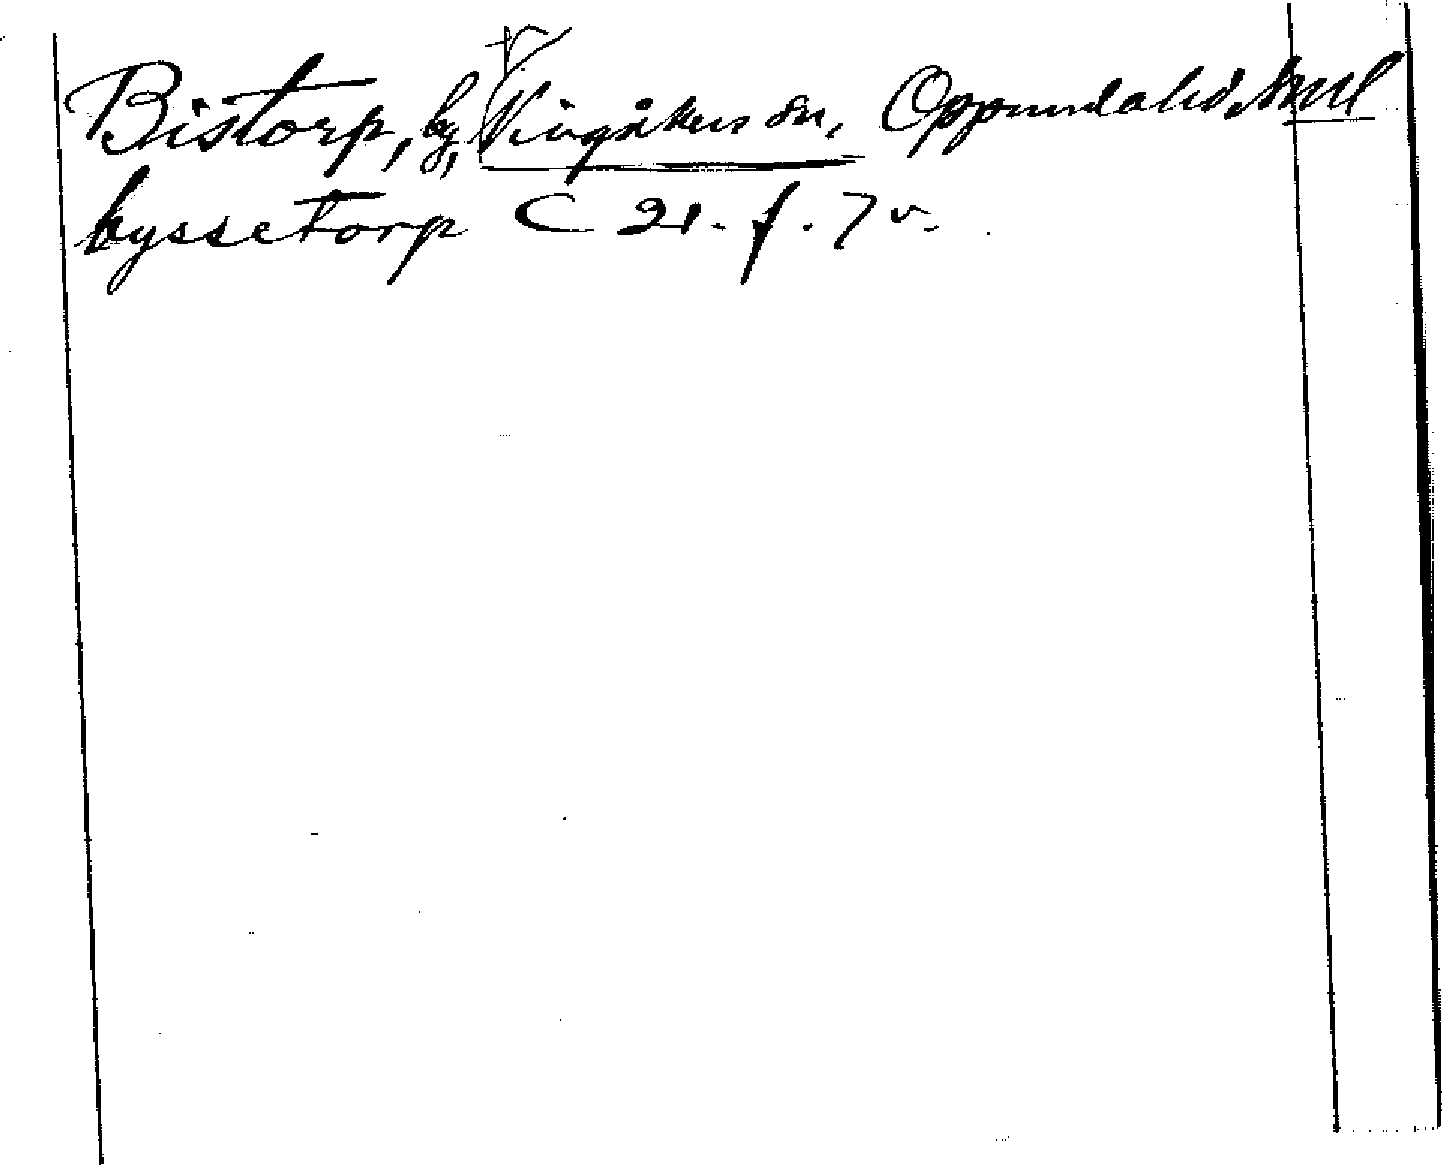 V
Bistorp, by, Vingåkers sn, Oppunda hd, Sml
byssetorp C 21. f. 7 v.